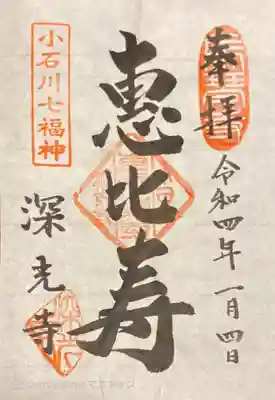 奉拝
令和四年一月四日
恵比寿
小石川七福神
深光寺